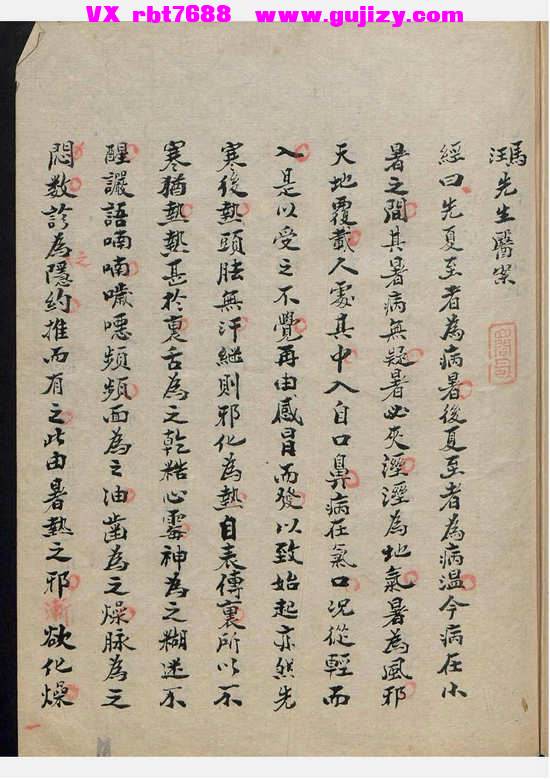 VX rbt7688 www.gujizy.com
馮汪先生醫案
經曰先夏至者為病暑後夏至者為病溫今病在小
暑之間其暑病無疑暑必夾溼溼為地氣暑為風邪
天地覆載人處其中入自口鼻病在氣口況從輕而
入是以受之不覺再由感冒而發以致始起亦然先
寒後熱頭胠無汗繼則邪化為熱自表傳裏所以不
寒猶熱熱甚於裏舌為之乾糙心䨪神為之糊迷不
醒讝語喃喃噦噁頻頻面為之油齒為之燥脉為之
悶数診為隱約推而有之此由暑熱之邪漸欲化燥
之